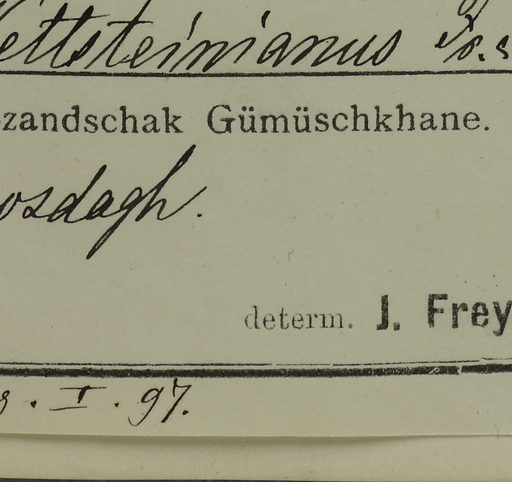 ettsteinianus
zandschak Gümüschkhane.
osdagh.
determ. J. Frey
. I . 97.